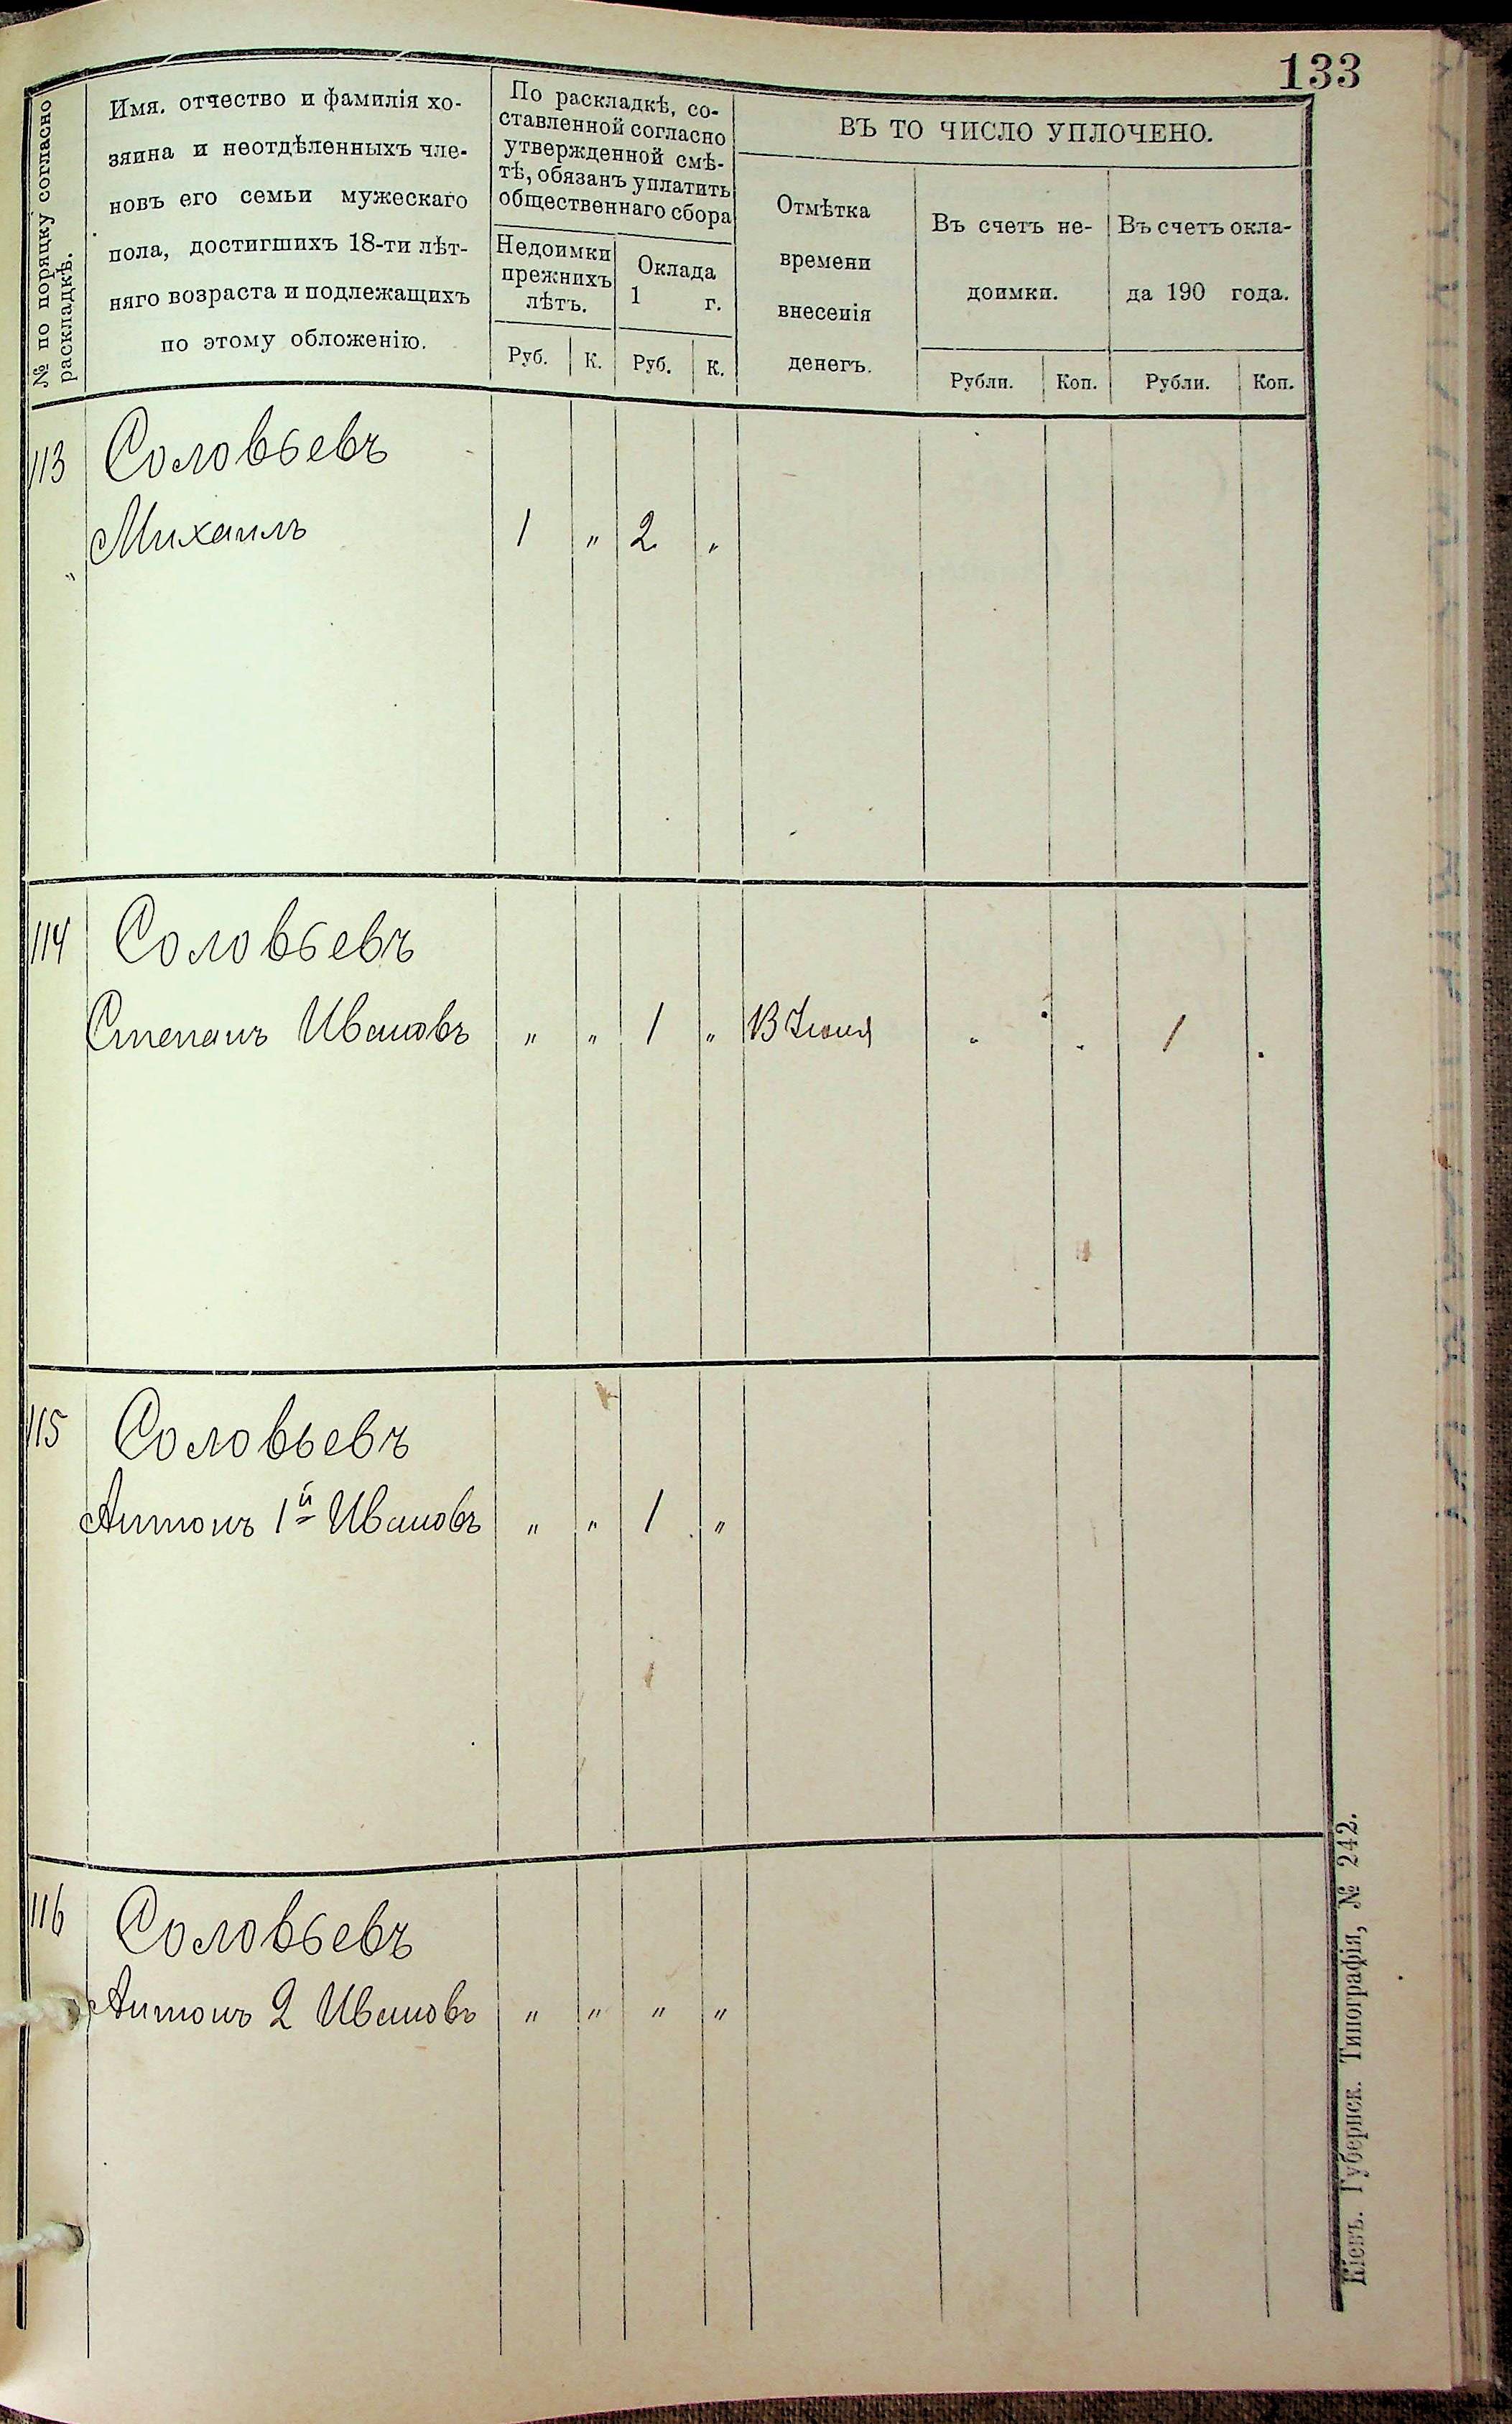 133
№ по порядку согласно
раскладкѣ.
Имя. отчество и фамилія хо-
зяина и неотдѣленныхъ чле-
новъ его семьи мужескаго
пола, достигшихъ 18-ти лѣт-
няго возраста и подлежащихъ
по этому обложенію.
По раскладкѣ, со-
ставленной согласно
утвержденной смѣ-
тѣ, обязанъ уплатить
общественнаго сбора
Недоимки
прежнихъ
лѣтъ.
Оклада
1 г.
Руб. К. Руб. К.
ВЪ ТО ЧИСЛО УПЛОЧЕНО.
Отмѣтка
времени
внесенія
денегъ.
Въ счетъ не-
доимки.
Въ счетъ окла-
да 190 года.
Рубли. Коп. Рубли. Коп.
113 Соловьевъ
Михаилъ 1 „ 2 „
114 Соловьевъ
Степанъ Ивановъ „ „ 1 „ 13 Іюня . . 1 .
115 Соловьевъ
Антонъ 1й Ивановъ „ „ 1 „
116 Соловьевъ
Антонъ 2 Ивановъ „ „ „ „
Кіевъ. Губернск. Типографія, № 242.